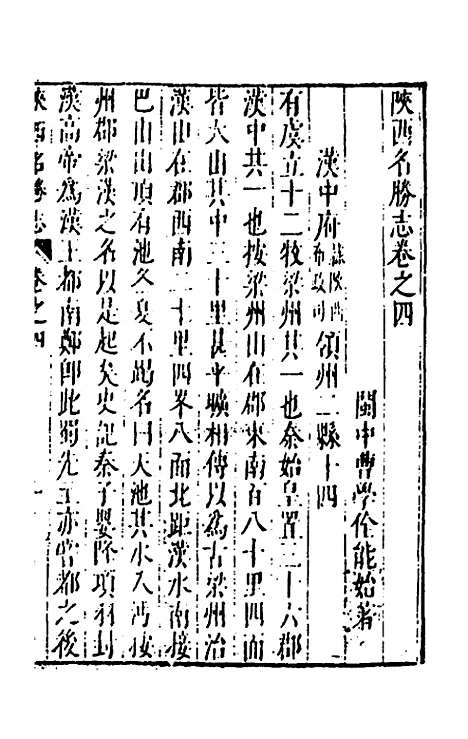 陝西名勝志卷之四
閩中曹學佺能始著
漢中府隸陝西布政司領州二縣十四
有虞立十二牧梁州其一也秦始皇置三十六郡
漢中共一也按梁州山在郡東南百八十里四面
皆大山其中三十里甚平曠相傳以爲古梁州治
漢山在郡西南二十里四峯八面北距漢水南接
巴山山頂有池冬夏不竭名曰天池其水入沔按
州郡梁漢之名以是起矣史記秦子嬰降項羽封
漢高帝爲漢王都南鄭卽此蜀先主亦嘗都之後
陝西名勝志 卷之四 一